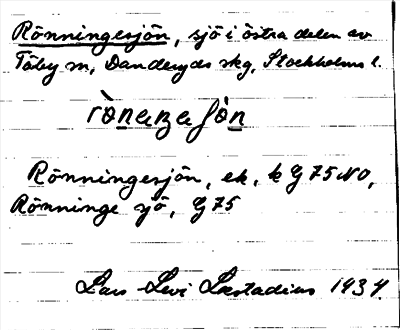 Rönningesjön, sjö i östra delen av
Täby sn, Danderyds skg, Stockholms l.
Rönningesjön, ek, k G 75 NO,
Rönninge sjö, G 75
Lars Levi Læstadius 1934.